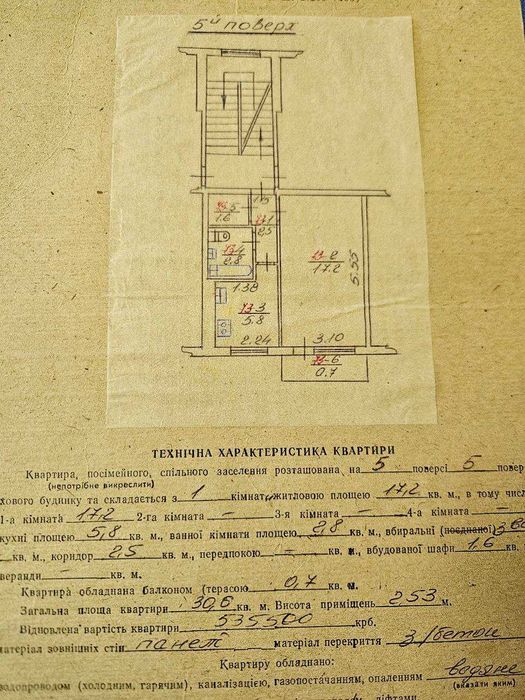 5й поверх
1.5
73-5
1.6
73-1
2.5
73-4
2.8
73-2
17.2
5.55
1.38
73-3
5.8
2.24
3.10
73-6
0.7
ТЕХНІЧНА ХАРАКТЕРИСТИКА КВАРТИРИ
Квартира, посімейного, спільного заселення розташована на 5 поверсі 5 повер
(непотрібне викреслити)
хового будинку та складається з 1 кімнат житловою площею 17,2 кв. м., в тому числі
1-а кімната 17,2 2-га кімната – 3-я кімната – 4-а кімната –
кухні площею 5,8 кв. м., ванної кімнати площею 2,8 кв. м., вбиральні (поєднаної)
– кв. м., коридор 2,5 кв. м., передпокою – кв. м., вбудованої шафи 1,6 кв.
веранди – кв. м.
Квартира обладнана балконом (терасою) 0,7 кв. м.
Загальна площа квартири 30,6 кв. м. Висота приміщень 2,53 м.
Відновлена вартість квартири 535500 крб.
матеріал зовнішніх стін панел матеріал перекриття з/бетон
Квартиру обладнано:
водопроводом (холодним, гарячим), каналізацією, газопостачанням, опаленням водяне
(вказати яким)
ліфтами